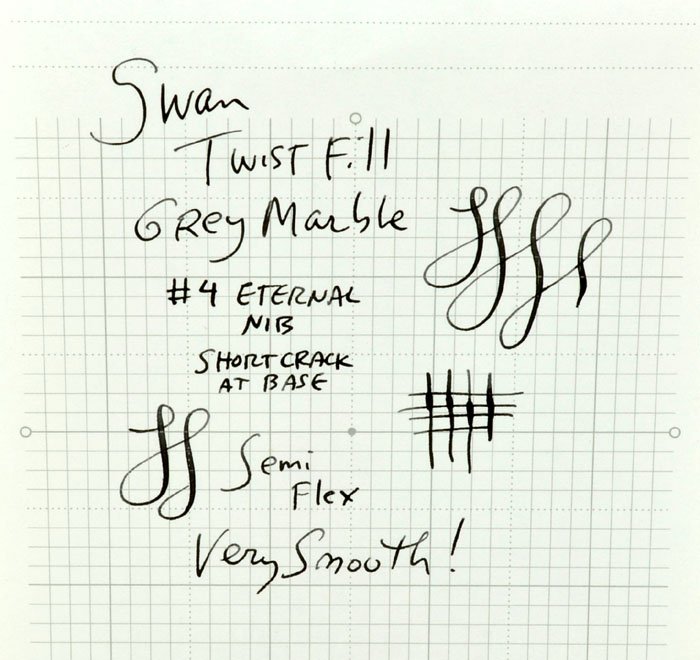 Swan
Twist Fill
Grey Marble
#4 ETERNAL
NIB
SHORT CRACK
AT BASE
Semi
Flex
Very Smooth!